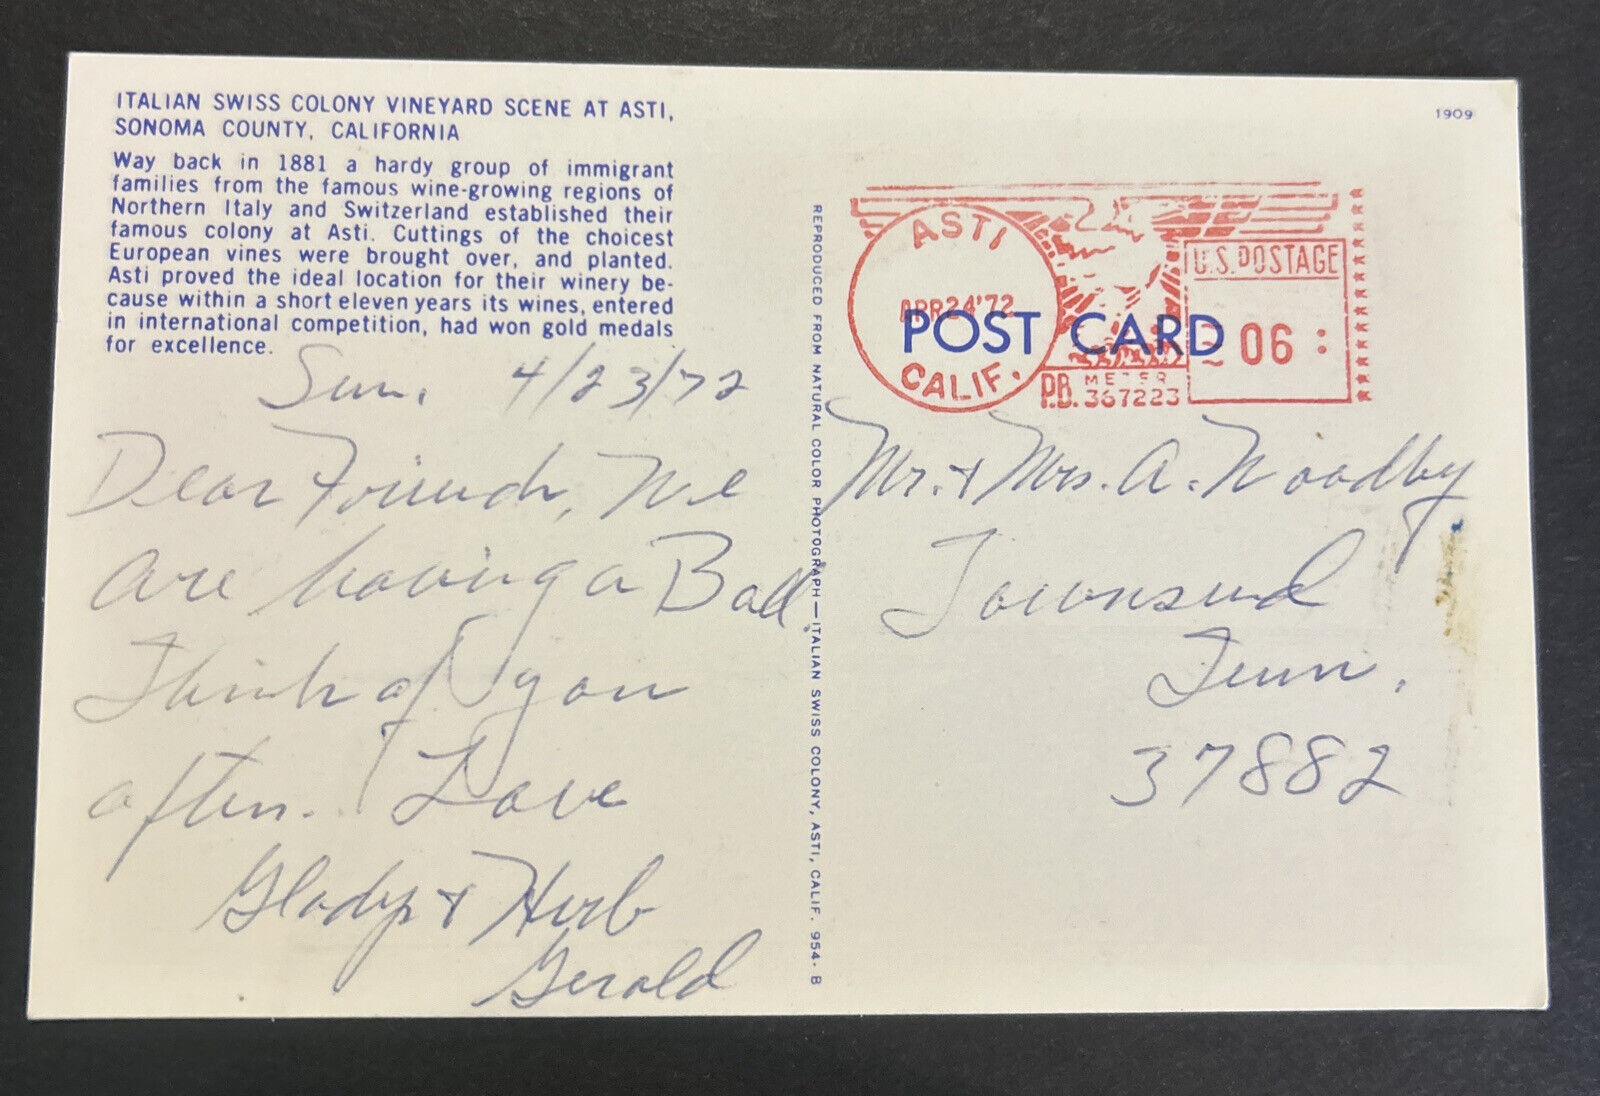 ITALIAN SWISS COLONY VINEYARD SCENE AT ASTI,
SONOMA COUNTY, CALIFORNIA
Way back in 1881 a hardy group of immigrant
families from the famous wine-growing regions of
Northern Italy and Switzerland established their
famous colony at Asti. Cuttings of the choicest
European vines were brought over, and planted.
Asti proved the ideal location for their winery be-
cause within a short eleven years its wines, entered
in international competition, had won gold medals
for excellence.
Sun. 4/23/72
Dear Friends, We
are having a Ball.
Think of you
often. Love
Gladys & Herb
Gerald
REPRODUCED FROM NATURAL COLOR PHOTOGRAPH—ITALIAN SWISS COLONY, ASTI, CALIF. 954-B
1909
ASTI
APR 24 '72
CALIF.
U.S. POSTAGE
06
P.B. METER
367223
POST CARD
Mr. & Mrs. A. Woodby
Townsend
Tenn.
37882